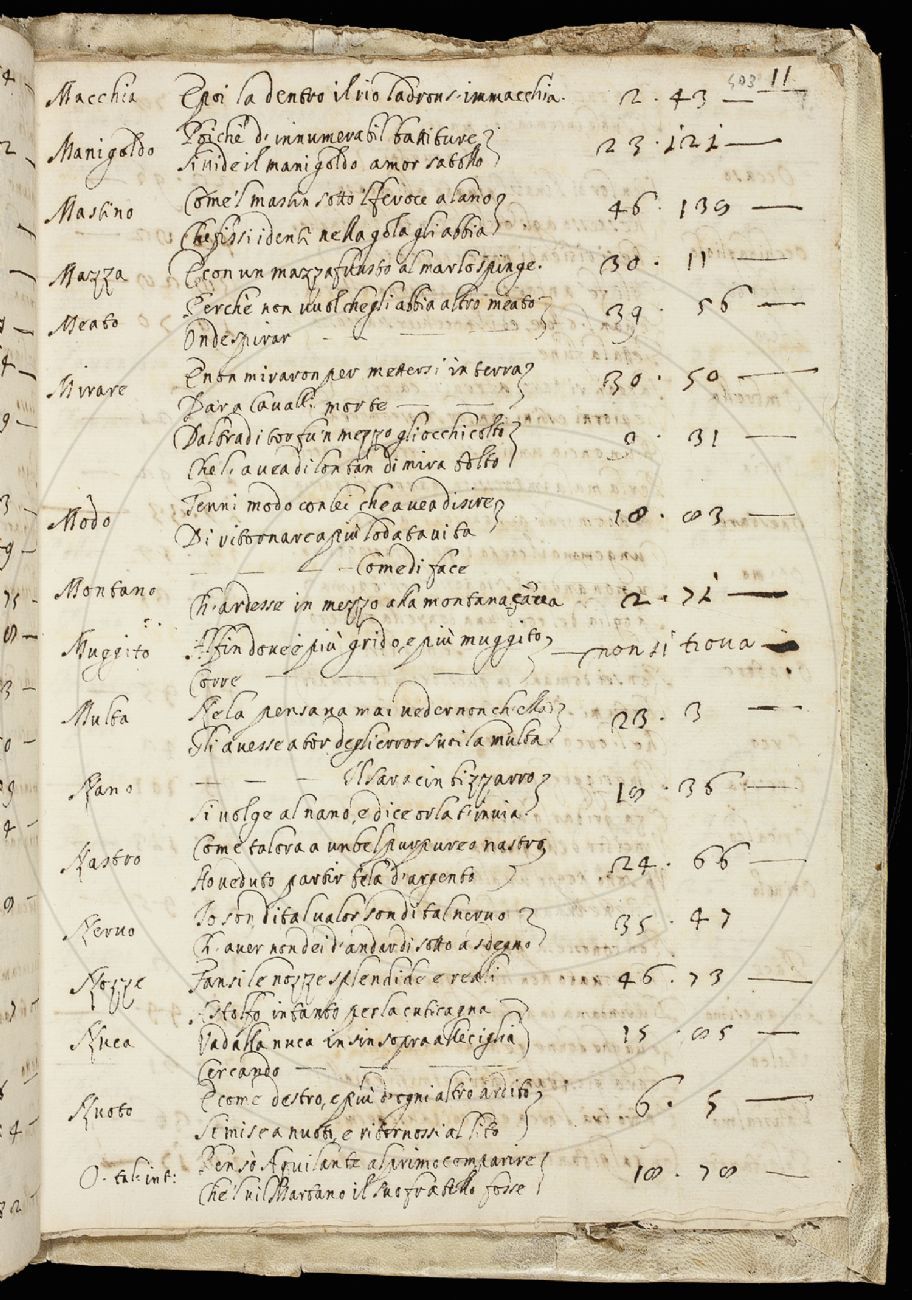 503 11
Macchia E poi la dentro il rio ladron s'immacchia. 2 · 43
Poiche d'innumerabil battiture
Manigoldo Si vide il manigoldo amor satollo 23 · 121
Mastino Come'l mastin sotto'l feroce alano 46 · 139
Che fissi i denti nella gola gli abbia
Mazza E con un mazzafrusto al mar lo spinge. 30 · 11
Meato Perche non vuol che gli abbia altro meato 39 · 56
Onde spirar
Mirare E non miraron per mettersi in terra 30 · 50
Dar a Cavalli morte
Dal traditor fu'n mezzo gli occhi colto 9 · 31
Che l'avea di lontan di mira tolto
Modo Tenni modo con lei ch'avea disire 18 · 83
Di ritornar a più lodata vita
Come di face
Montano Ch'ardesse in mezzo alla montana cava 2 · 71
Muggito Alfin dov'è più grido, e più muggito non si trova
Corre
Multa Ne la pensava mai veder non ch'ella 23 · 3
Gli avesse a tor degli error suoi la multa.
Nano Il Saracin bizzarro 18 · 36
Si volge al nano, e dice or la t'invia
Nastro Come talora un bel purpureo nastro 24 · 66
Ho veduto partir tela d'argento
Nervo Io son di tal valor son di tal nervo 35 · 47
Ch'aver non dei d'andar di sotto a sdegno
Nozze Fansi le nozze splendide e reali 46 · 73
Astolfo intanto per la cuticagna
Nuca Va dalla nuca insin sopra alle ciglia 15 · 85
Cercando
Nuoto E come destro, e più d'ogni altro ardito 6 · 5
Si mise a nuoto, e ritornossi al lito
O. tal' int: Pensò Aquilante al primo comparire 18 · 78
Che'l vil Martano il suo fratello fosse